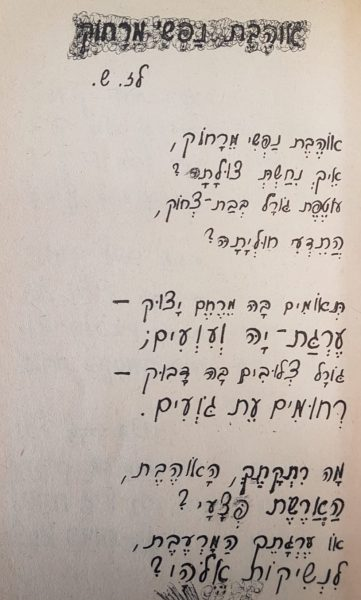 אוֹהֶבֶת נַפְשִׁי מֵרָחוֹק
לז. ש.
אוֹהֶבֶת נַפְשִׁי מֵרָחוֹק,
אֵיךְ נִחַשְׁתְּ צוּלָתָהּ?
עוֹטֶפֶת גּוֹרָל בְּבַת-צְחוֹק,
הֲתֵדְעִי חוּלְיָתָהּ?
תְּאוֹמִים בָּהּ מֵרֶחֶם יָצוּק –
עֶרְגַּת-יָהּ וְעִוְעִים;
גּוֹרַל צְלוּבִים בָּהּ דָּבוּק –
רְחוּמִים עֵת גּוֹוְעִים.
מָה רִתְּקַתֵךְ, הָאוֹהֶבֶת,
הַאֲרֶשֶׁת פְּצָעַי?
אוֹ עֶרְגָּתֵךְ הַמְרַעֶבֶת,
לִנְשִׁיקוֹת אֱלֹהָי?